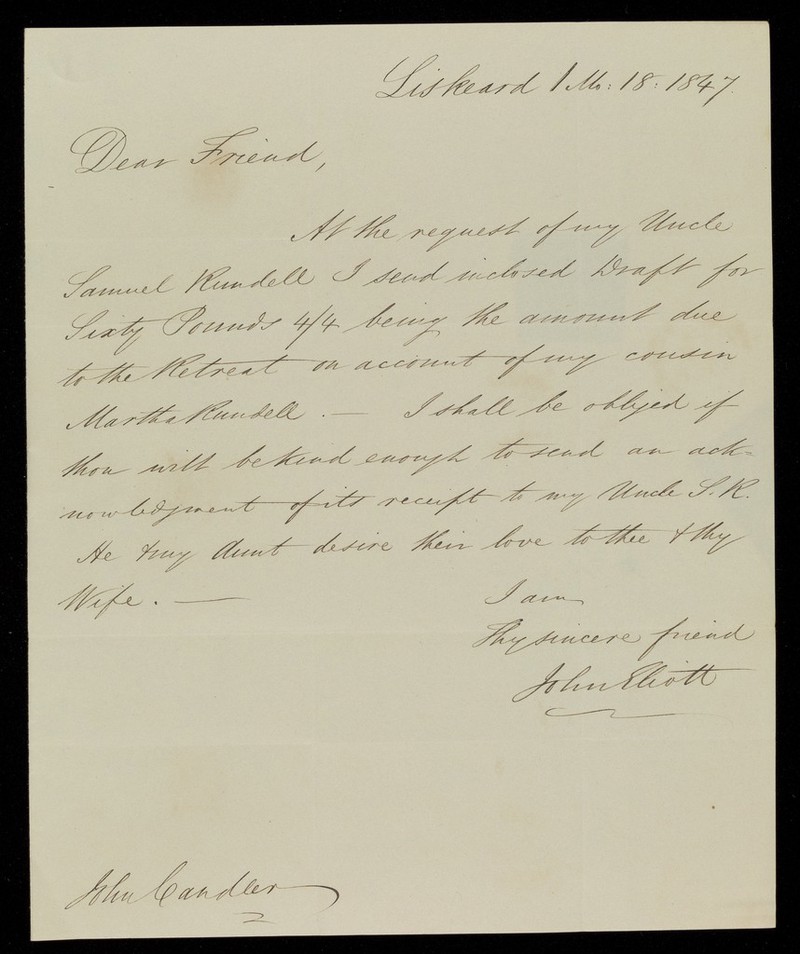 Liskeard 1 Mo: 18: 1847.
Dear Friend,
At the request of my Uncle
Samuel Rundell I send inclosed Draft for
Sixty Pounds 4/4 being the amount due
to the Retreat on account of my cousin
Martha Rundell. — I shall be obliged if
thou will be kind enough to send an ack=
nowledgment of its receipt to my Uncle S. R.
He & my Aunt desire their love to thee & thy
Wife. —
I am
Thy sincere friend
John Eliott
John Candler